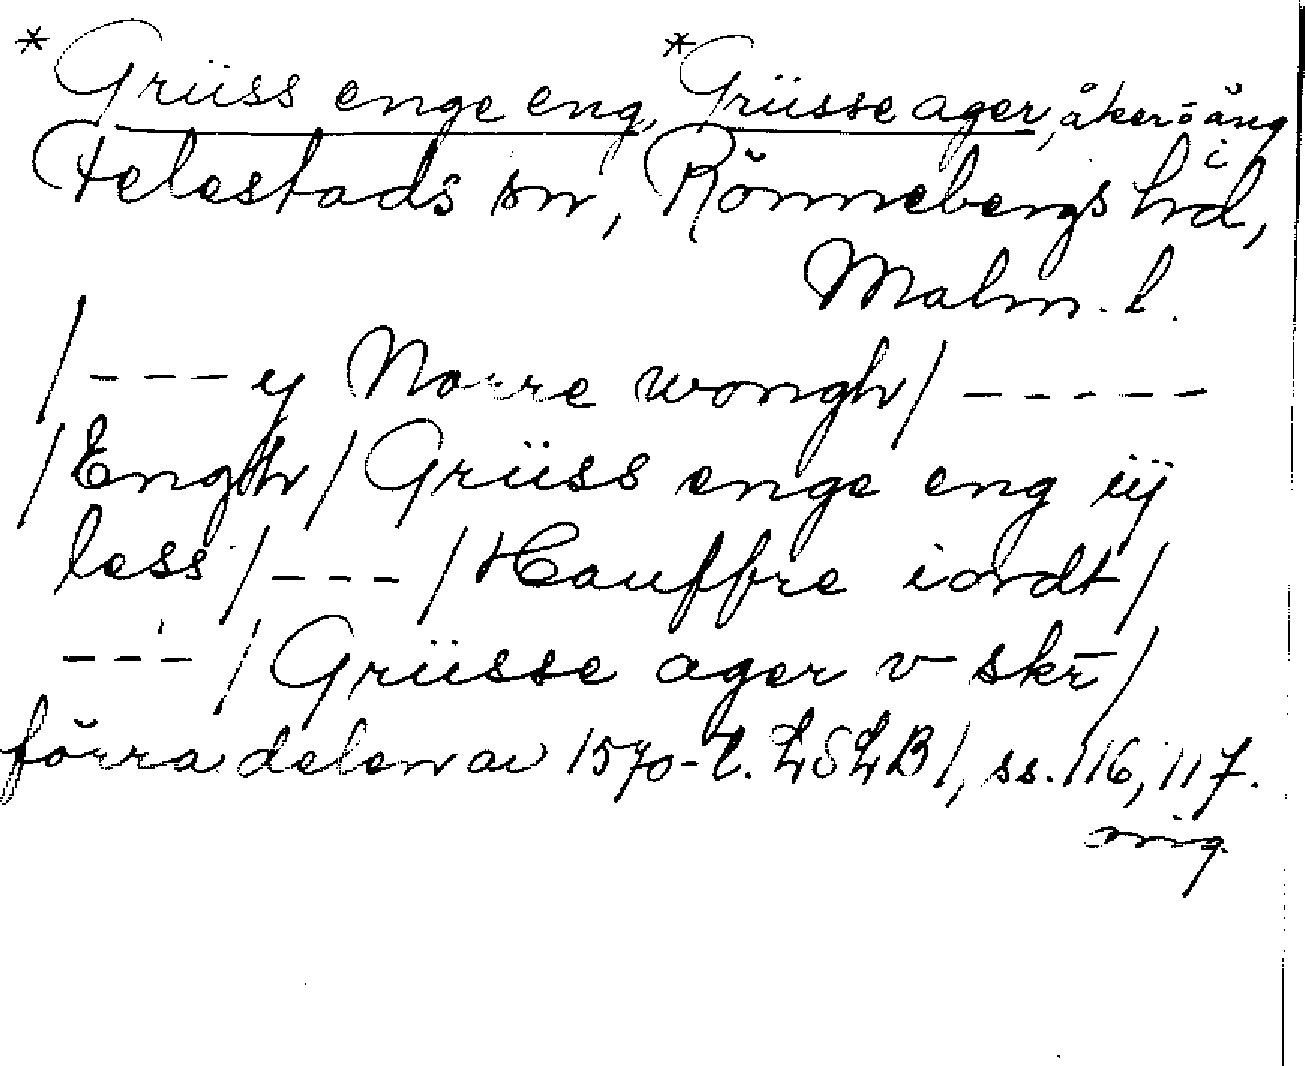 *Grüss enge eng, *Grüsse ager, åker o äng i
Felestads sn, Rönnebergs hd,
Malm. l.
/---y Norre wongh/-----
/Engh/Grüss enge eng iij
less/---/Hauffre iordt/
---/Grüsse ager v skr/
förra delen av 1570-t. LSLB1, ss. 116, 117.